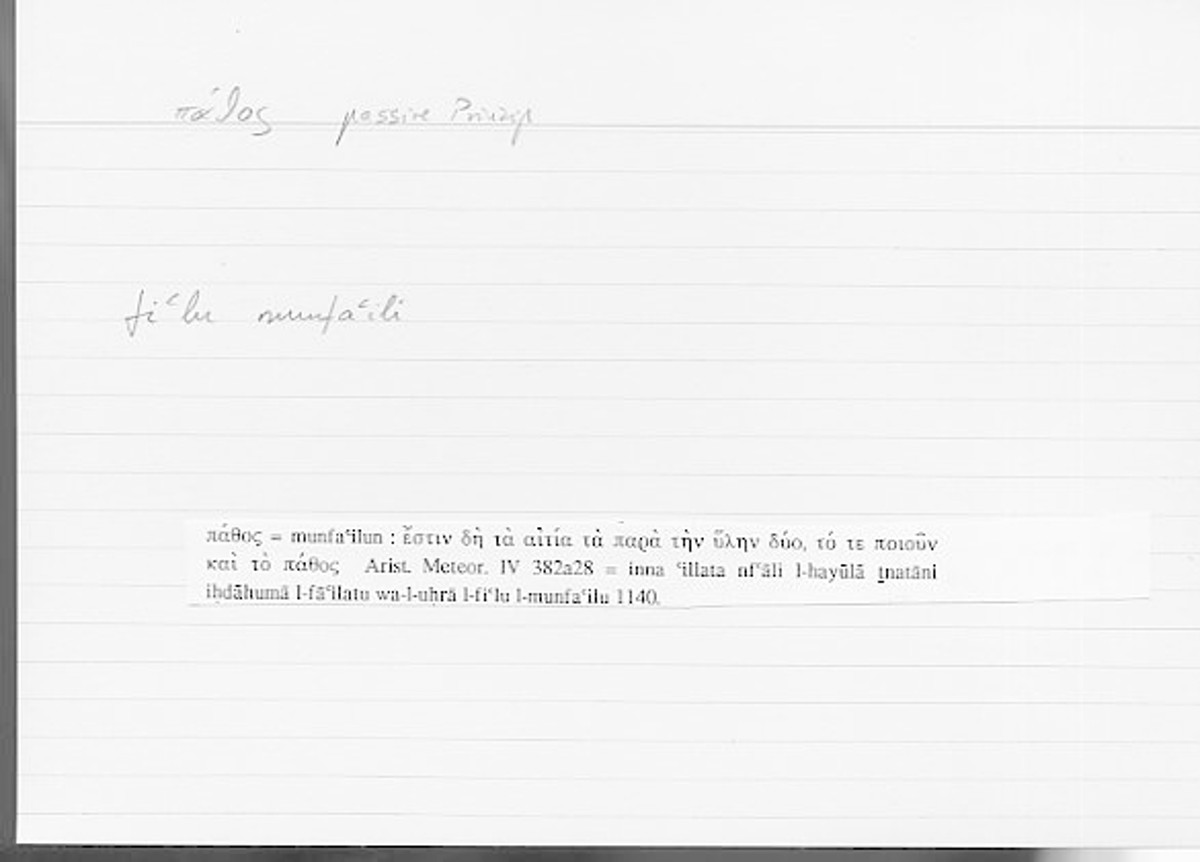 πάθος passive Prinzip
fiʿlu munfaʿili
πάθος = munfaʿilun : ἔστιν δὴ τὰ αἰτία τὰ παρὰ τὴν ὕλην δύο, τό τε ποιοῦν
καὶ τὸ πάθος Arist. Meteor. IV 382a28 = inna ʿillata nfʿāli l-hayūlā ṯnatāni
iḥdāhumā l-fāʿilatu wa-l-uḫrā l-fiʿlu l-munfaʿilu 1140.